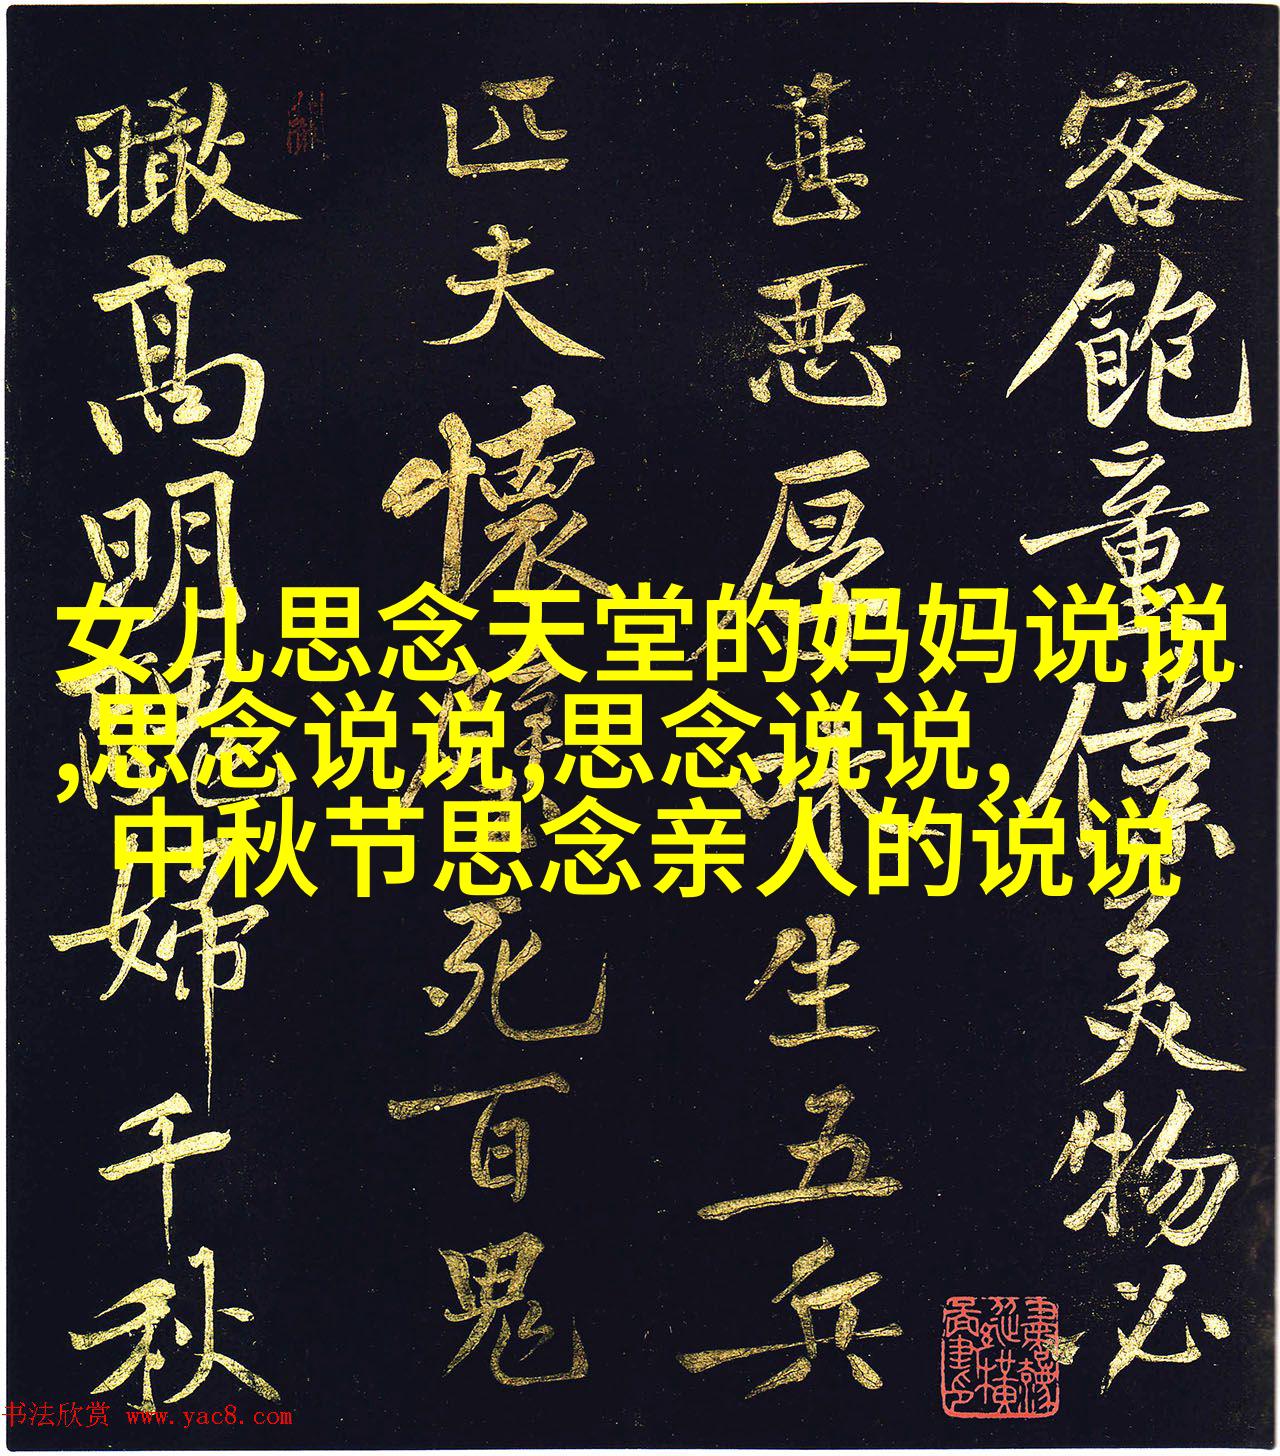 客飽童僕美物必
甚惡厚味生五兵
匹夫懷璧死百鬼
瞰高明醜婦千秋
女儿思念天堂的妈妈说说
,思念说说,思念说说,
中秋节思念亲人的说说
书法欣赏 www.yac8.com